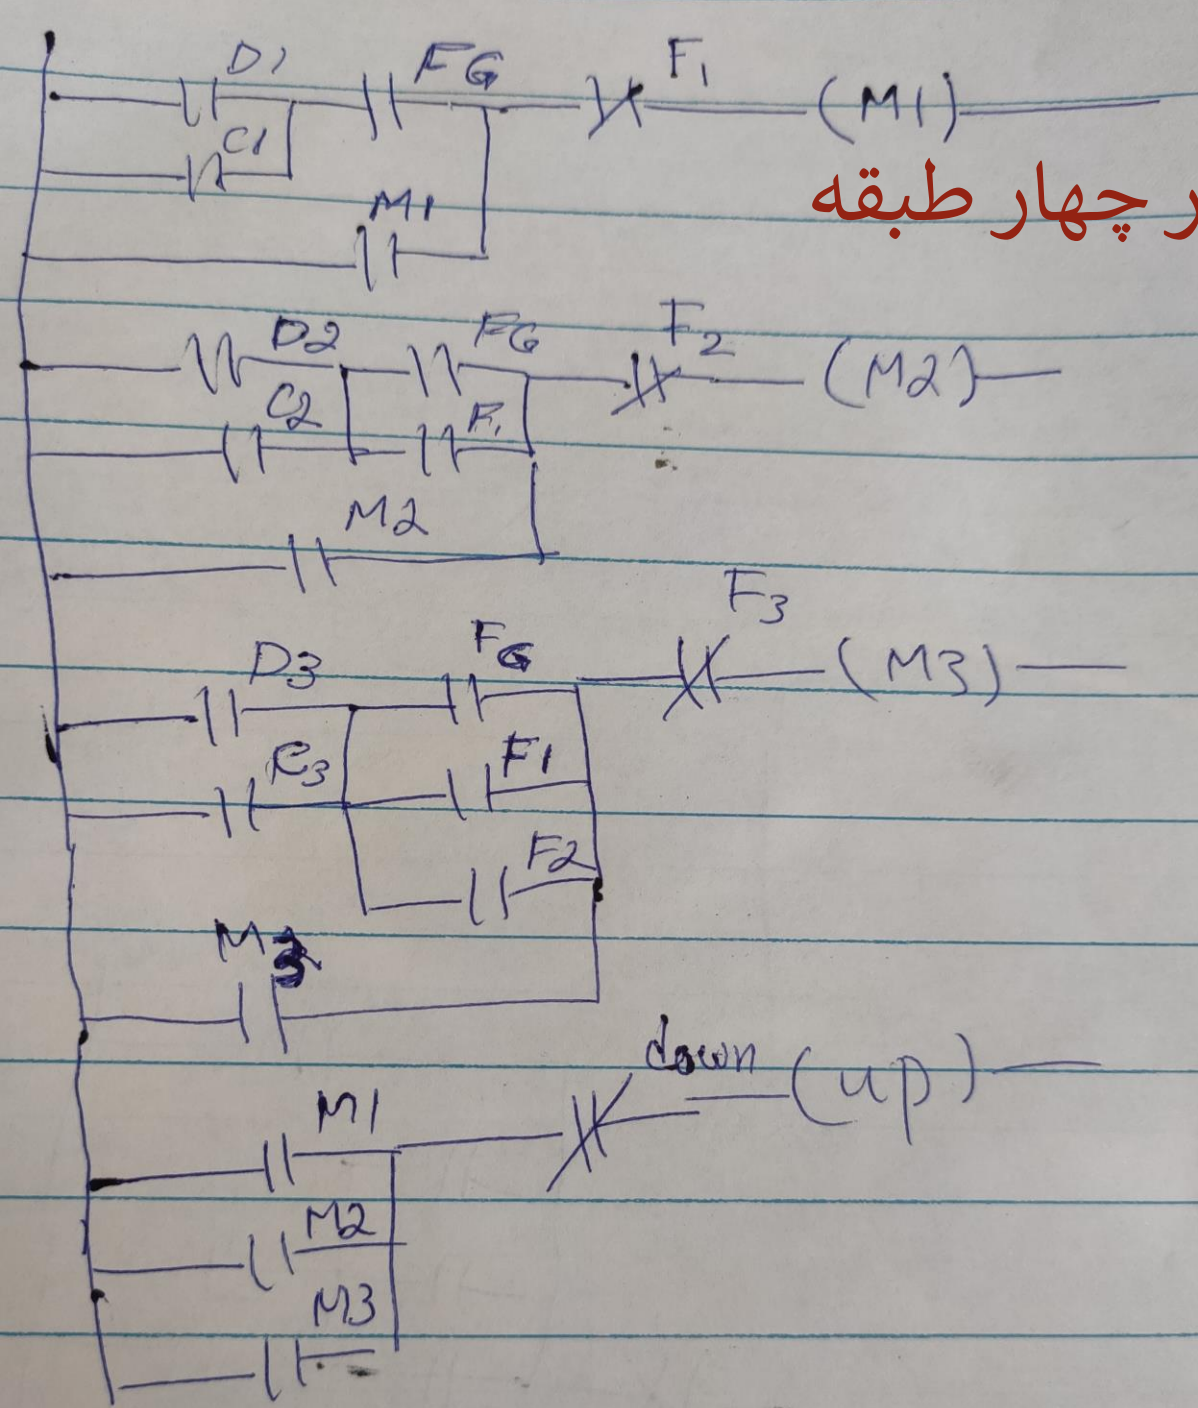 D1 FG F1 (M1)
C1
M1
ر چهار طبقه
D2 FG F2 (M2)
C2 F1
M2
F3
D3 FG (M3)
C3 F1
F2
M3
down (up)
M1
M2
M3